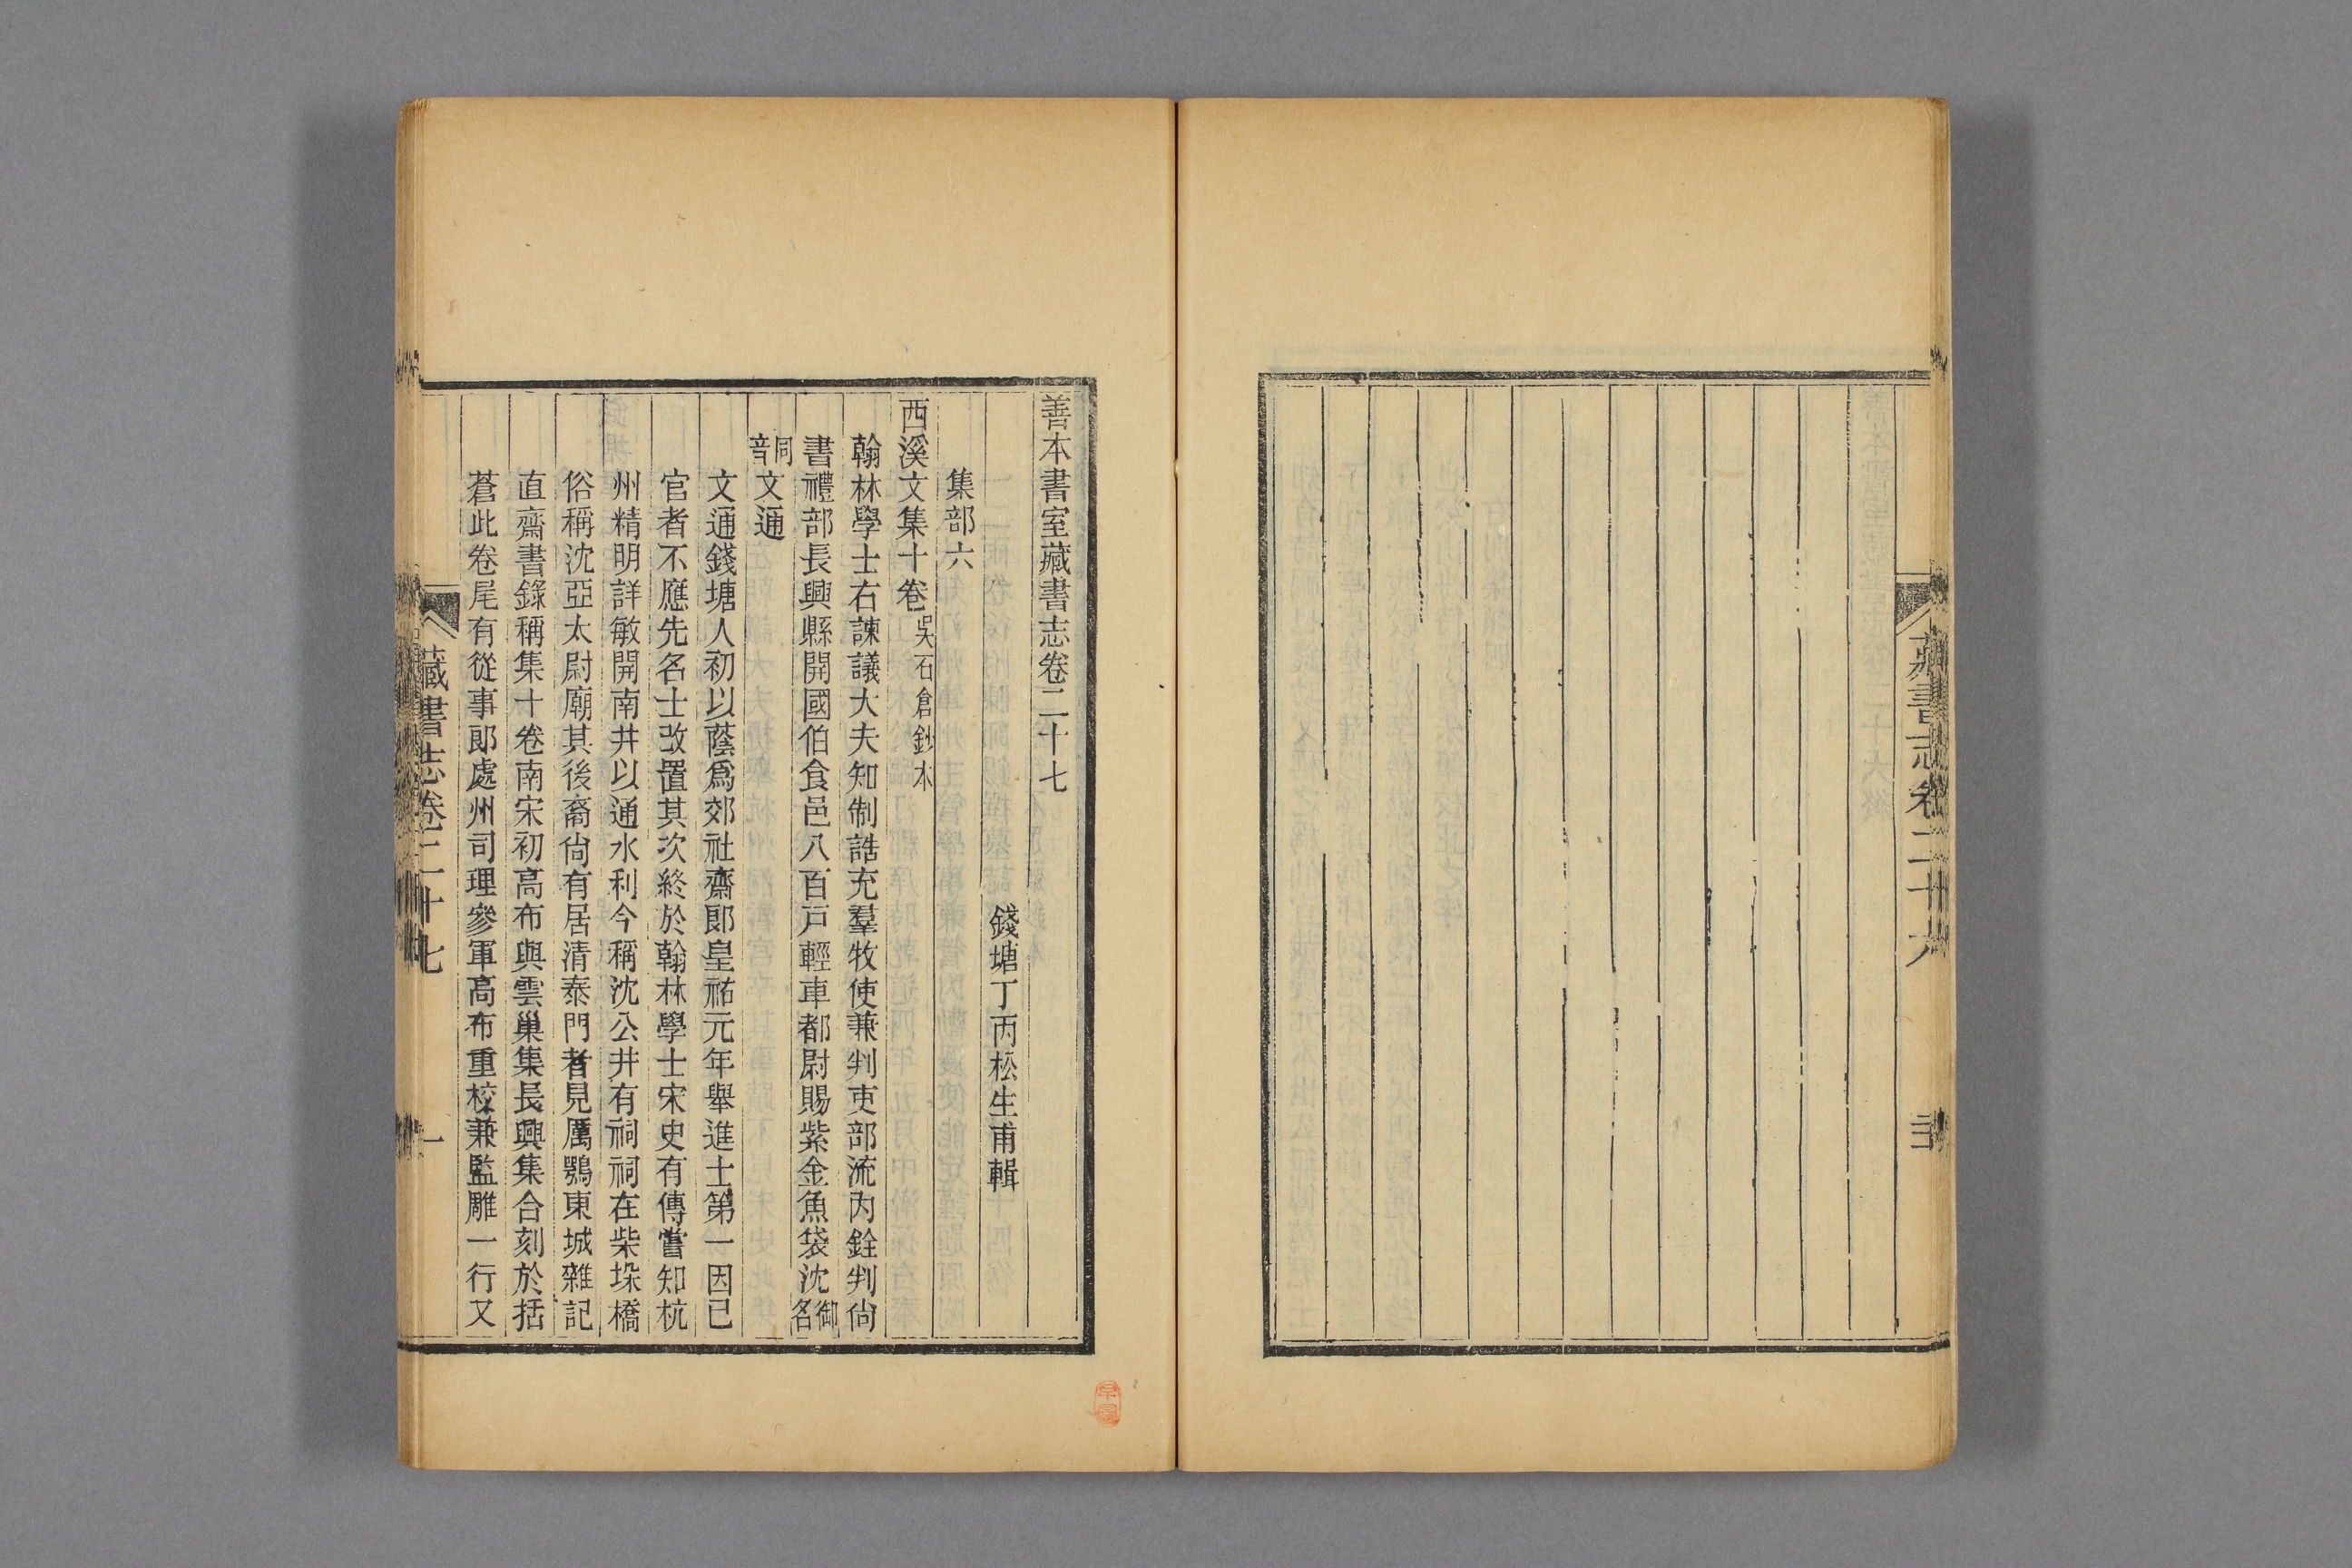 藏書志卷二十六
善本書室藏書志卷二十七
錢塘丁丙松生甫輯
集部六
西溪文集十卷吳石倉鈔本
翰林學士右諫議大夫知制誥充羣牧使兼判吏部流內銓判尙
書禮部長興縣開國伯食邑八百戸輕車都尉賜紫金魚袋沈御名
同音文通
文通錢塘人初以蔭爲郊社齋郞皇祐元年舉進士第一因已
官者不應先名士改置其次終於翰林學士宋史有傳嘗知杭
州精明詳敏開南井以通水利今稱沈公井有祠祠在柴垛橋
俗稱沈亞太尉廟其後裔尙有居清泰門者見厲鶚東城雜記
直齋書錄稱集十卷南宋初高布與雲巢集長興集合刻於括
蒼此卷尾有從事郞處州司理參軍高布重校兼監雕一行又
藏書志卷二十七
一